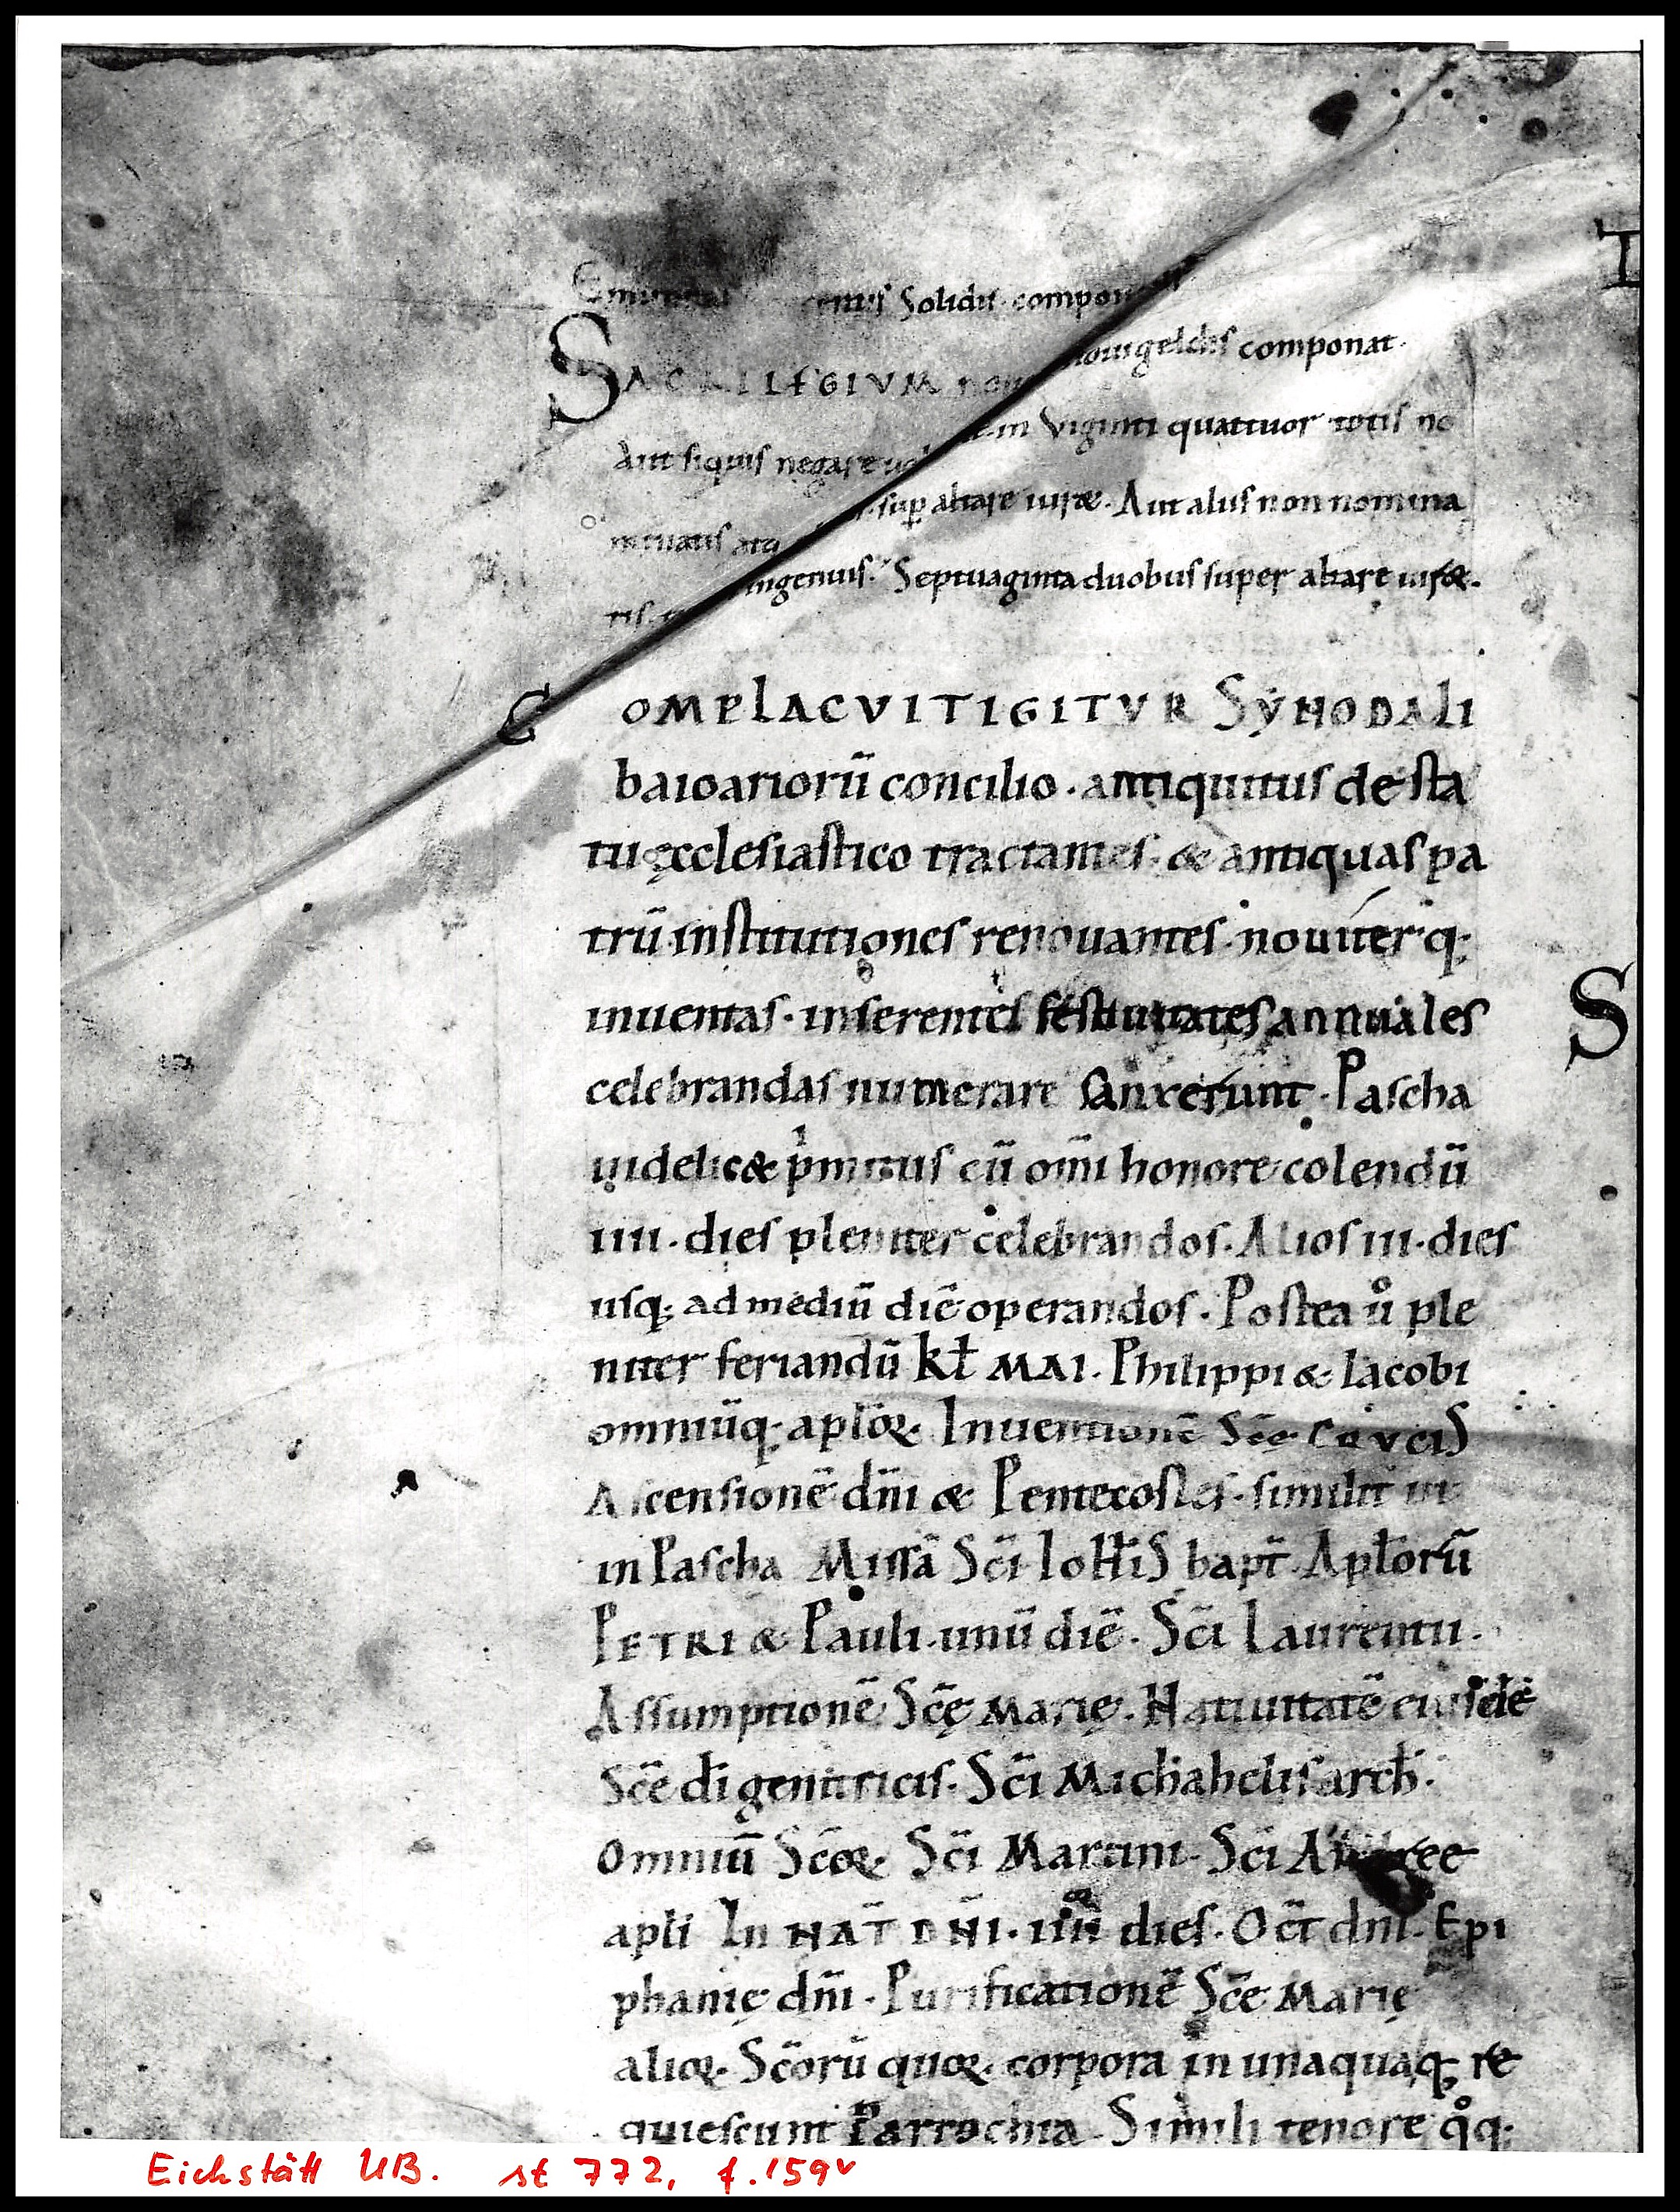 solidis compo
SACRILEGIVM no ouigeldis componat.
Aut siquis negare uol in Viginti quattuor totis no
minatis atq sup altare iuret. Aut aliis non nomina
tis ingenuis. Septuaginta duobus super altare iuret.
COMPLACVIT IGITVR SYNODALI
baioariorū concilio. antiquitus de sta
tu ęcclesiastico tractantes. & antiquas pa
trū institutiones renouantes. nouiter q;
inuentas. inserentes festiuitates annuales
celebrandas numerare sanxerunt. Pascha
uidelic& pͥmitus cū om̄i honore colendū
IIII. dies pleniter celebrandos. Alios III. dies
usq; ad mediū diē operandos. Postea uͦ ple
niter feriandū kł MAI. Philippi & Iacobi
omniūq; aplōꝝ. Inuentionē Scę CRVCIS
Ascensionē dn̄i & Pentecostes. similit̄ ut
in Pascha Missā Sc̄i IoHĪS bapt̄. Apłorū
PETRI & Pauli. unū diē. Sc̄i Laurentii.
Assumptionē Sc̄ę Marię. Natiuitatē eiusdē
Sc̄e di genitricis. Sc̄i Michahelis arch̄.
Omniū Sc̄oꝝ. Sc̄i Martini. Sc̄i Andree
apli In NAT̄ DN̄I. IIII dies. Oct̄ dn̄i. Epi
phanię dn̄i. Purificationē Sc̄e Marię
alioꝝ. Sc̄orū quoꝝ. corpora in unaquaq; re
quiescunt Parrochia. Simili tenore qͦq;
D
S
Eichstätt UB. st 772, f. 159v